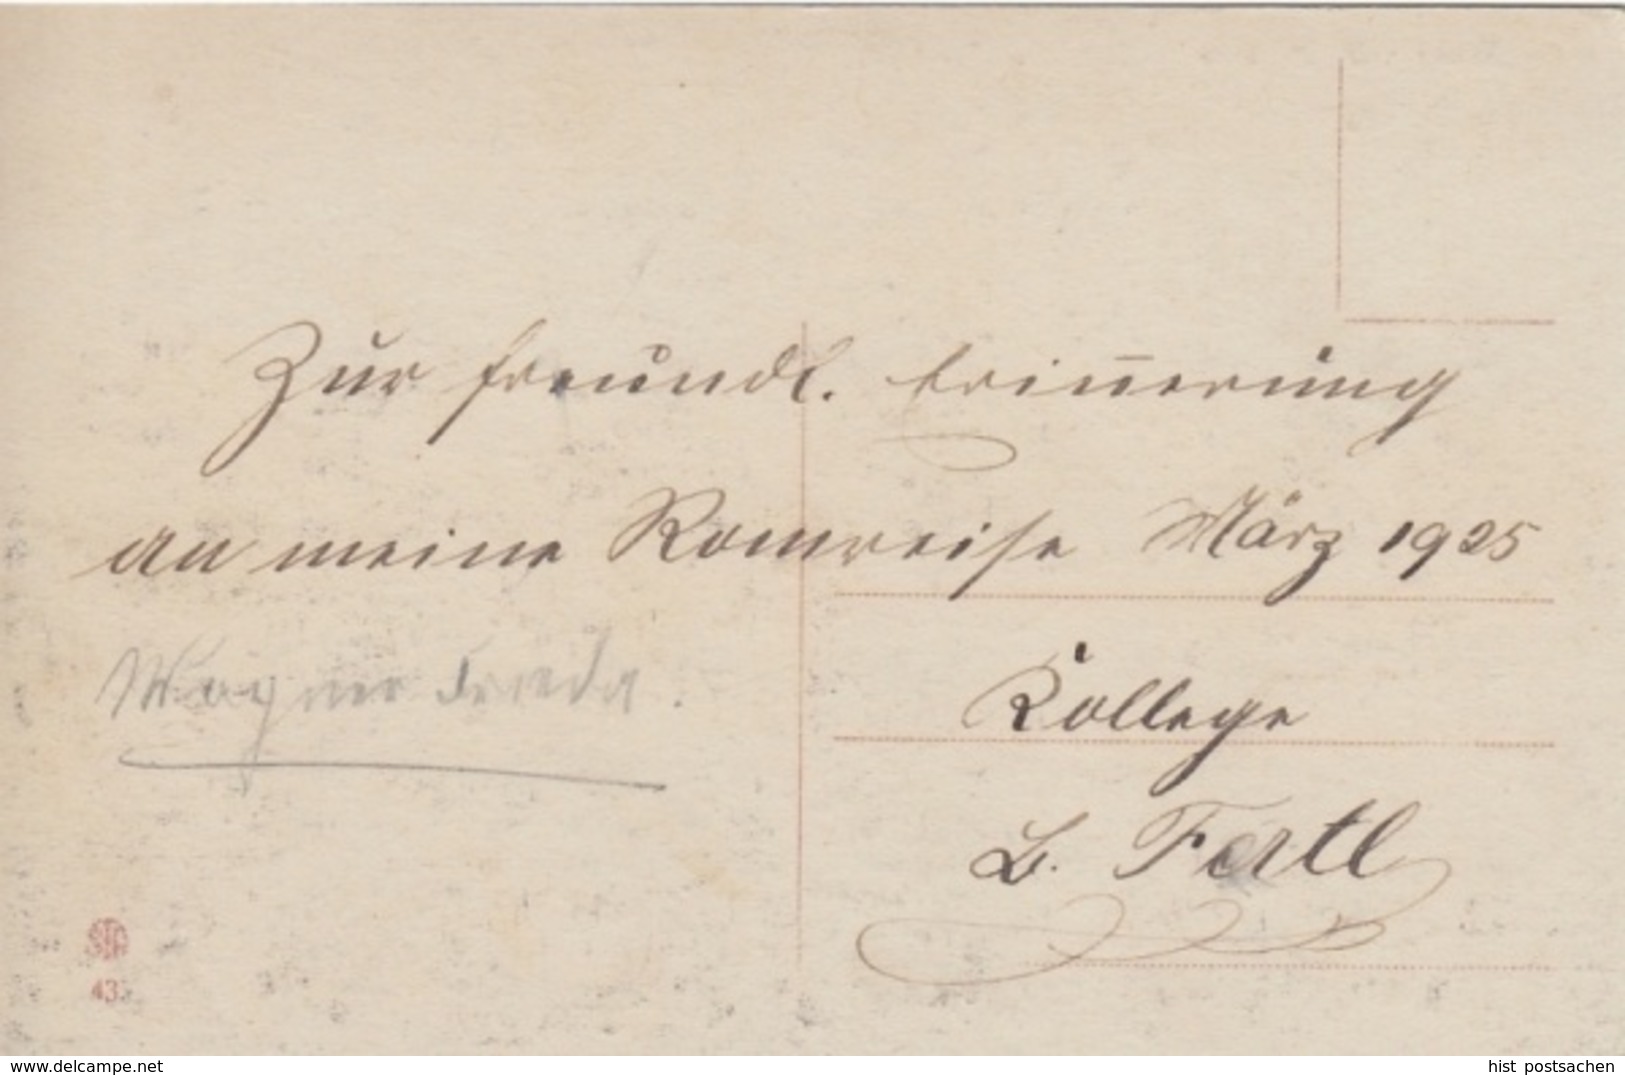 Zur freundl. Erinnerung
an meine Romreise März 1925
Wagner Frieda.
Kollege
L. Fertl
43
www.delcampe.net
hist_postsachen